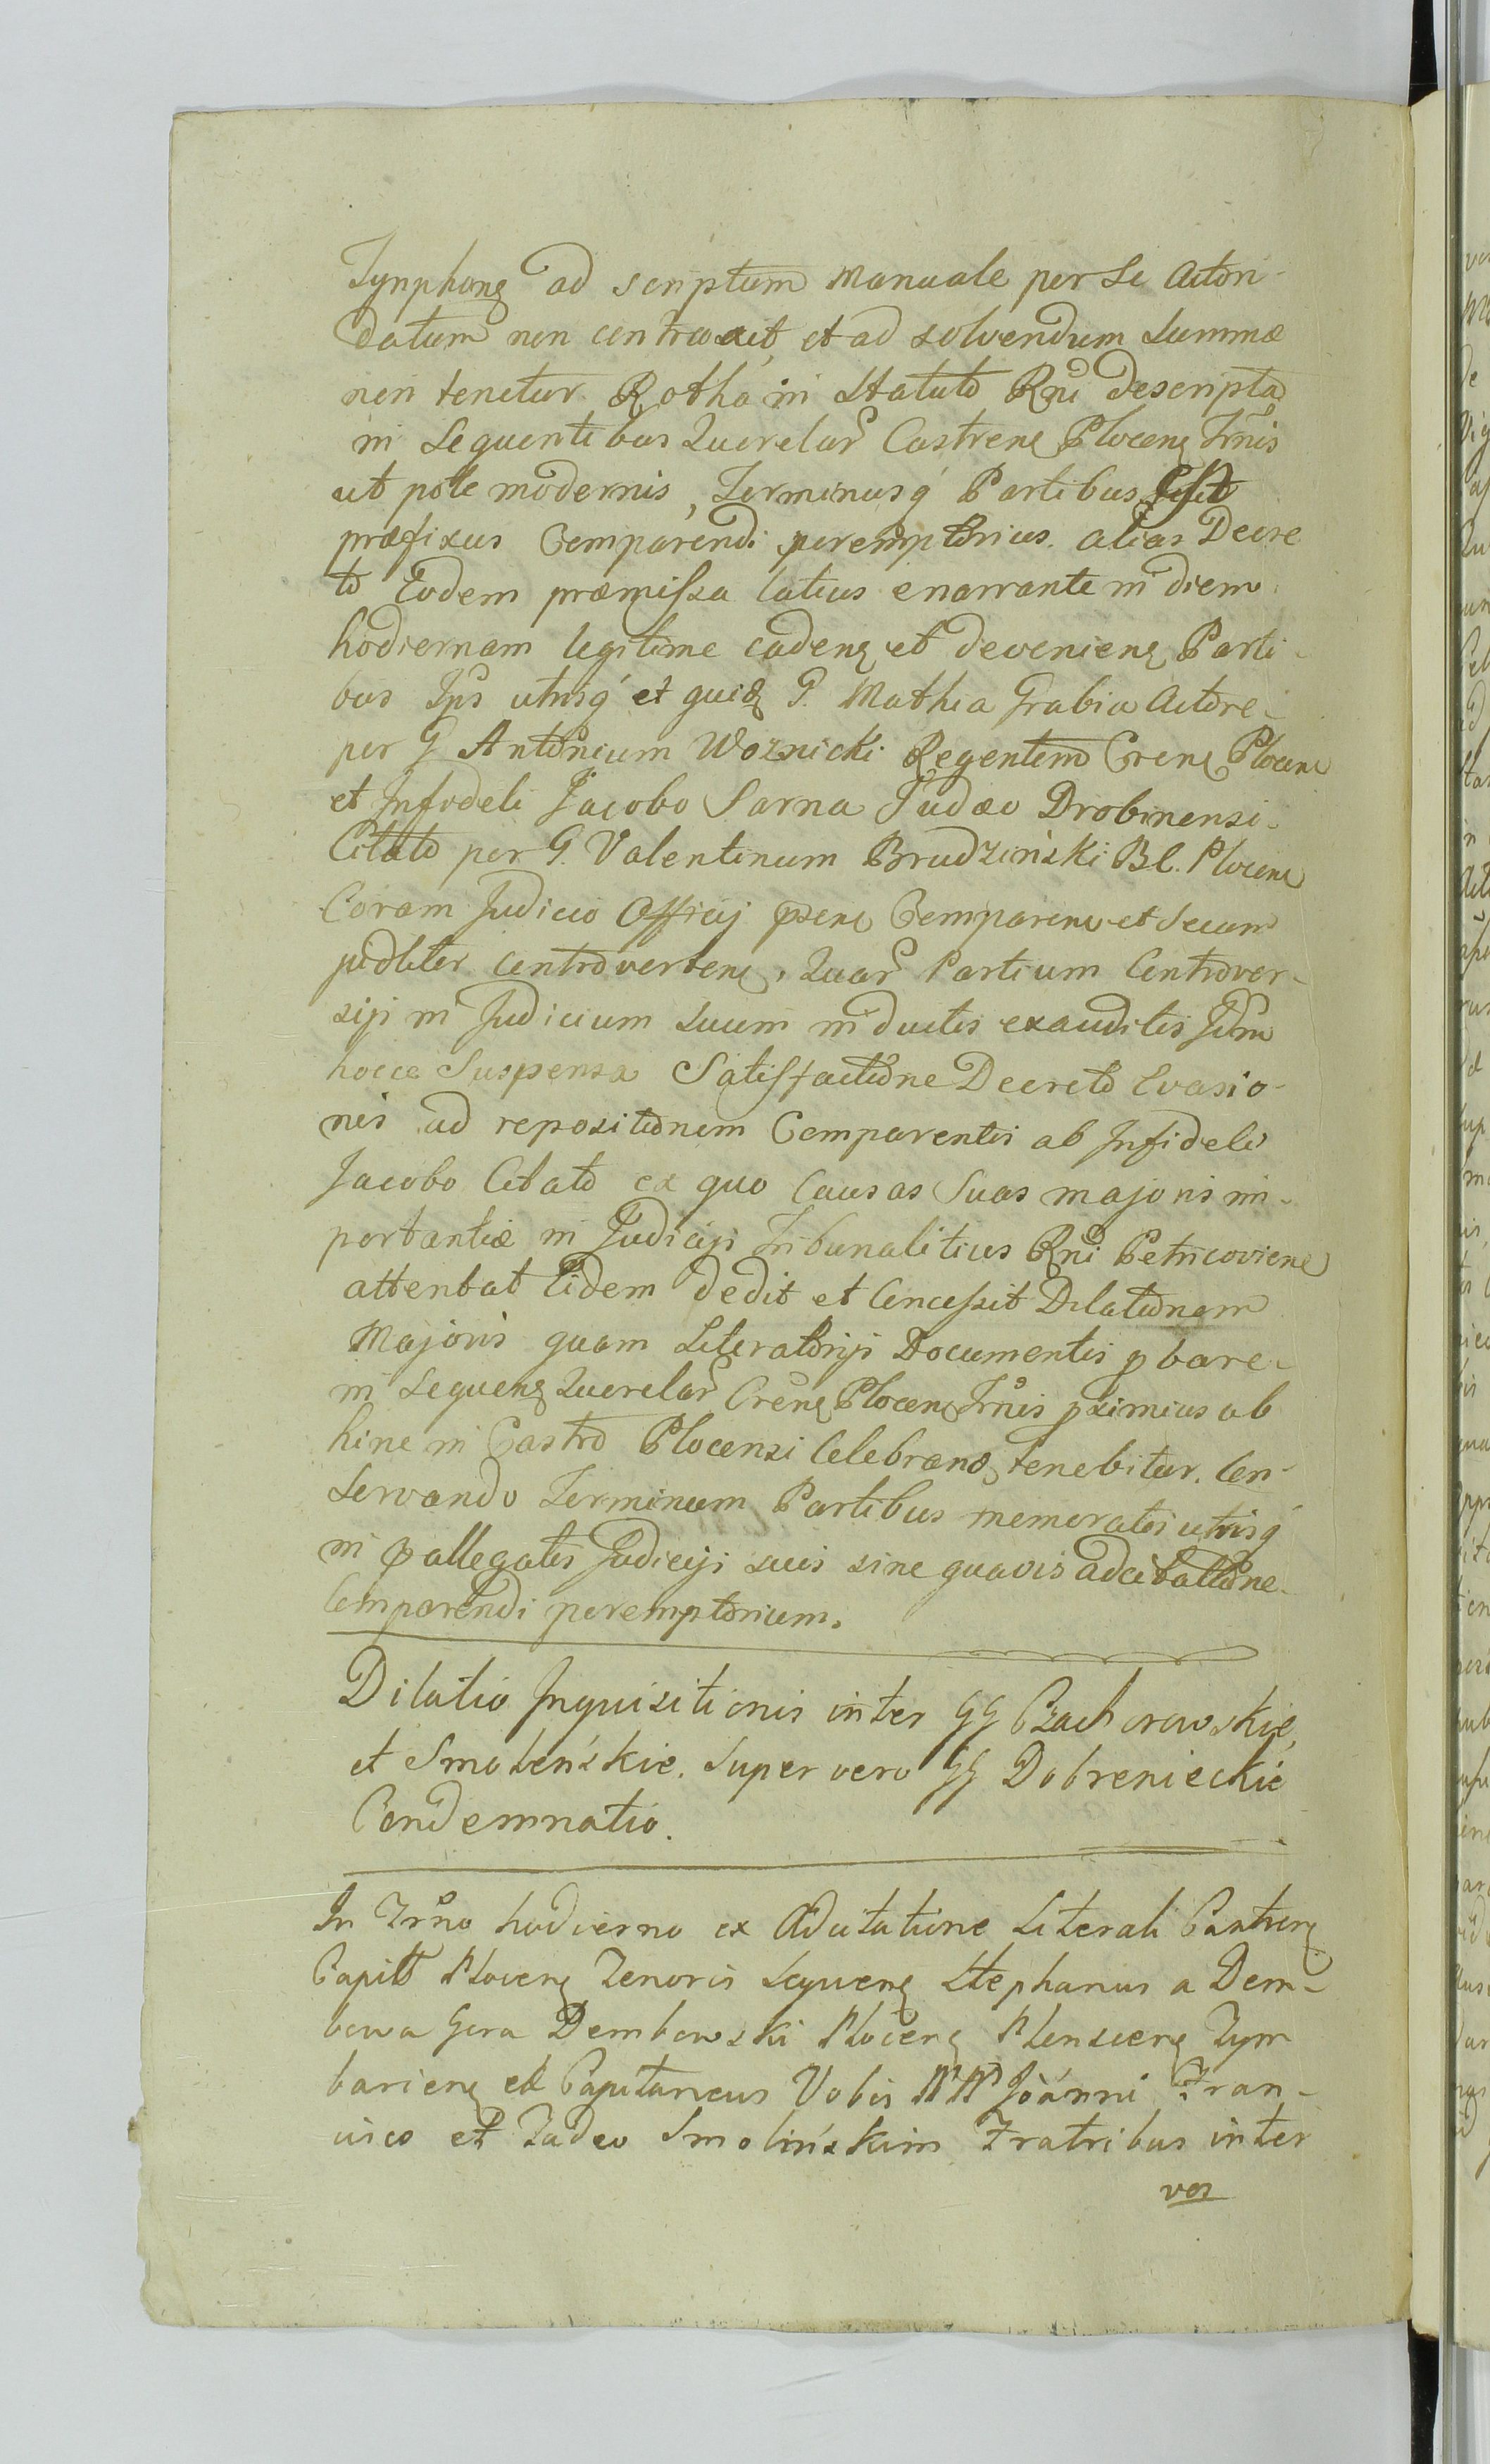 Tynphong ad scriptum Manuale per Se Actori
datum non contraxit, et ad solvendum Summæ
non tenetur Rotha in Statuto Rñi descripta
in Sequentibus Querelar Castreng Ploceng Trnis
ut pote modernis, Terminusq Partibus est
præfixus Comparendi peremptorius. alias Decre
to Eodem præmissa latius enarrante in diem
hodiernam legitime cadeng et devenieng Parti-
bus Ips utrisq et quidẽ G. Mathia Grabia Actore
per G Antonium Woznicki Regentem Creng Ploceng
et Infideli Jacobo Sarna Judæo Drobinensi
Citato per G. Valentinum Brudzinski Bl. Ploceng
Coram Judicio Officij pseng Compareng et Secum
judliter controverteng, Quar Partium Controver-
sijs in Judicium Suum inductis exauditis Idm
hocce Suspensa Satisfactione Decreto Evasio-
nis ad repositionem Comparentis ab Infideli
Jacobo Citato ex quo Causas Suas majoris im-
portantiæ in Judicijs Tribunalitius Rñi Petricovieng
attentat Eidem dedit et Concessit Dilationem
Majoris quam Literatorijs Documentis pbare
in Sequeng Querelar Creng Ploceng Trnis pximius ab
hinc in Castro Plocensi Celebrand tenebitur. Con-
Servando Terminum Partibus memoratis utrisq
in pallegatis Judicijs suis sine quavis adcitatione
Comparendi peremptorium.
Dilatio Inquisitionis inter GG Czachorowskie,
et Smolenskie. Super vero GG Dobrenieckie
Condemnatio.
In Trno hodierno ex Adcitatione Literali Castreng
Capitt Ploceng Tenoris Sequeng Stephanus a Dem-
bowa Gora Dembowski Ploceng Plonsceng Tym
barieng et Capitaneus Vobis WW Joanni Fran-
cisco et Tadeo Smolinskim Fratribus inter
vos